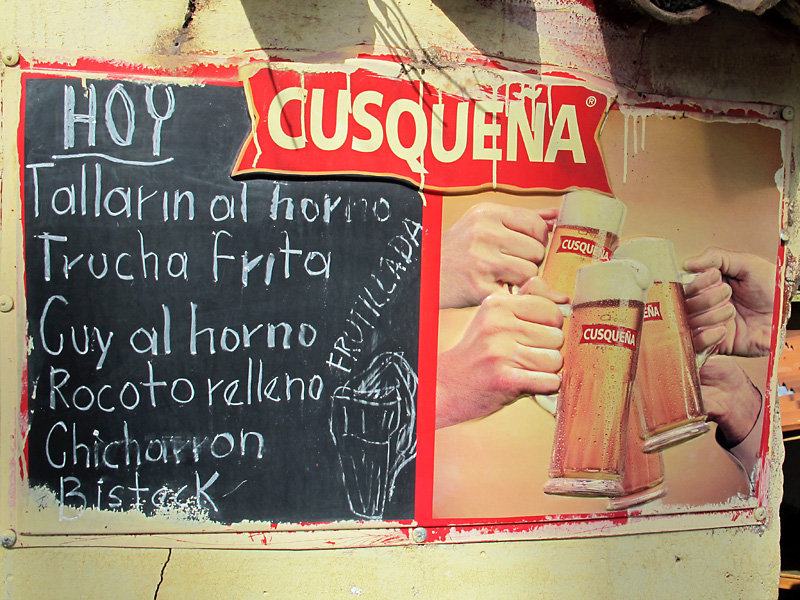 HOY
CUSQUEÑA®
Tallarin al horno
Trucha frita
Cuy al horno
Rocoto relleno
Chicharron
Bisteck
FRUTILLADA
CUSQUEÑA
CUSQUEÑA
EÑA